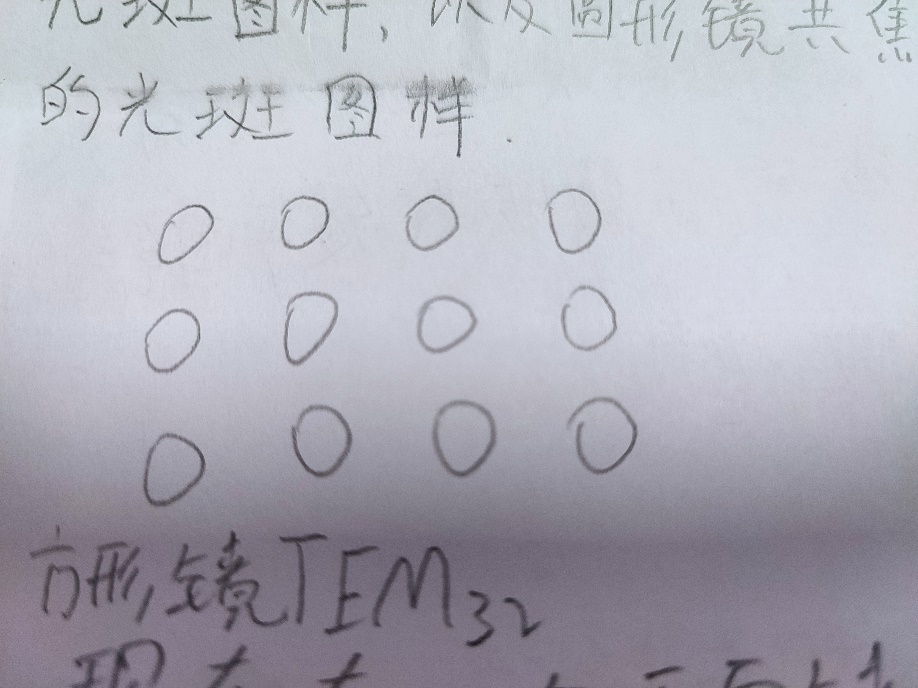 光斑图样, 以及圆形镜共焦
的光斑图样.
方形镜TEM32